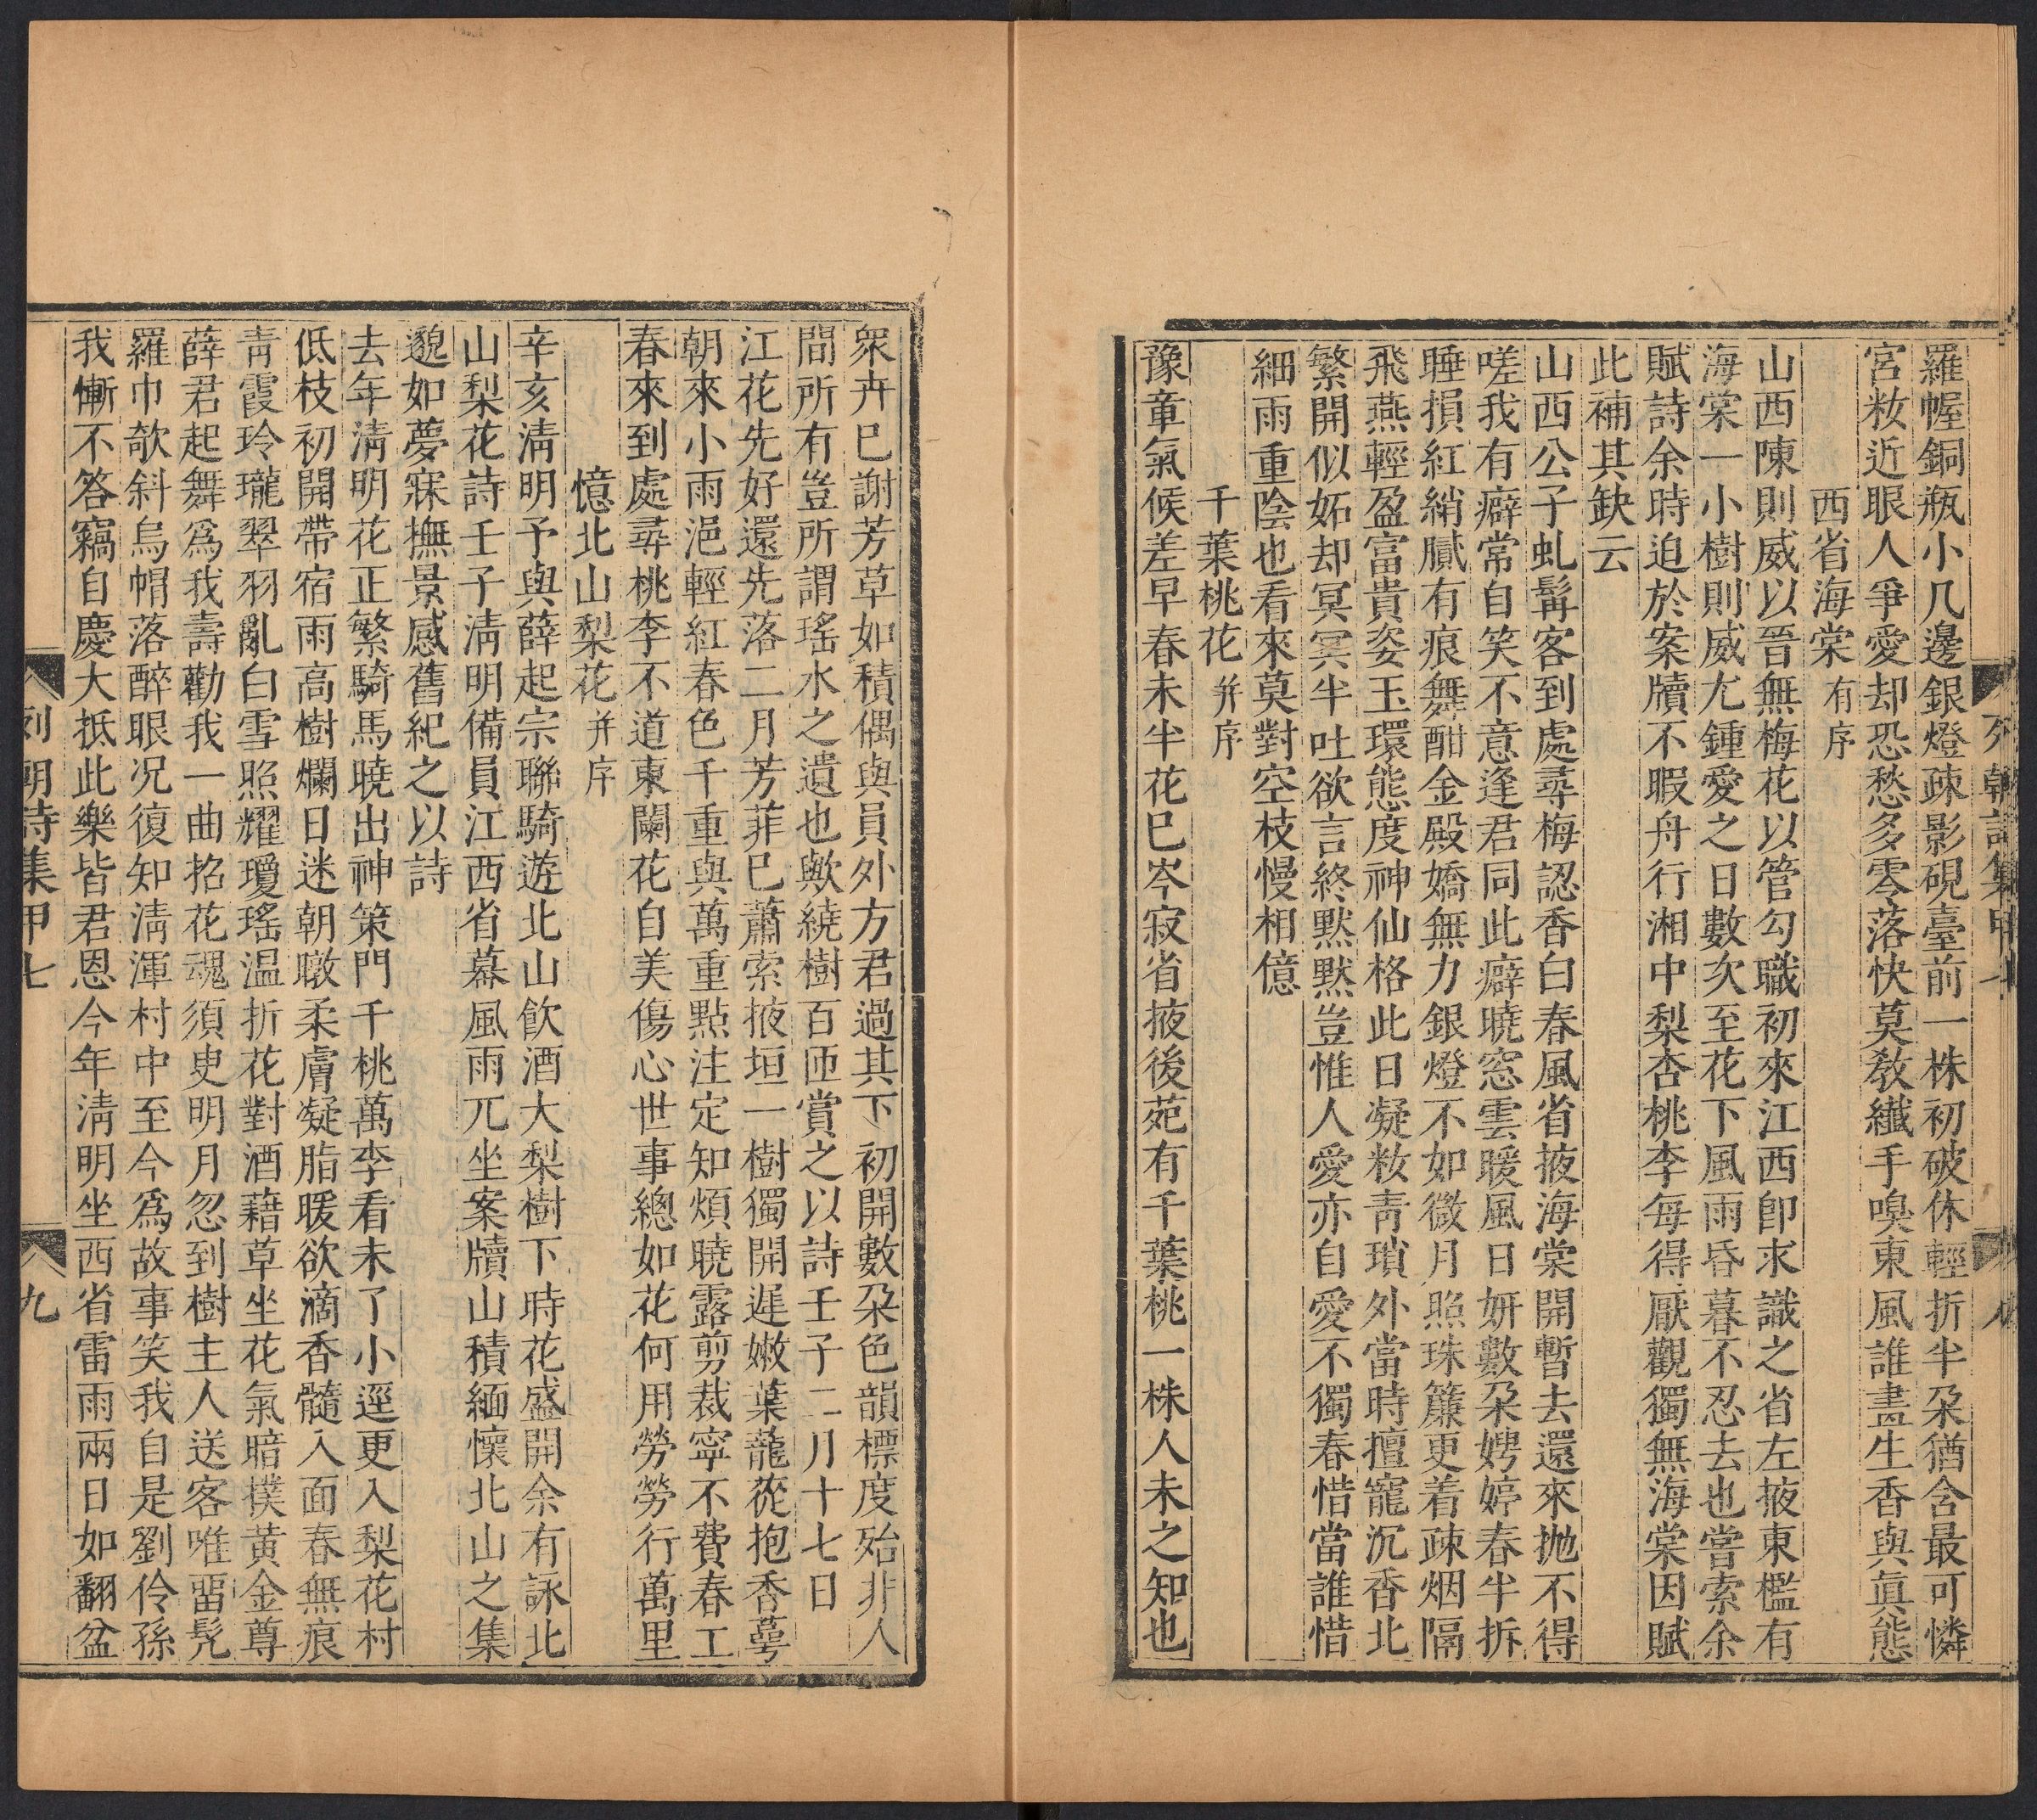 列朝詩集甲七
八
羅幄銅瓶小几邊銀燈疎影硯臺前一株初破休輕折半朶猶含最可憐
宮妝近眼人爭愛却恐愁多零落快莫敎纖手嗅東風誰盡生香與眞態
西省海棠有序
山西陳則威以晉無梅花以管勾職初來江西卽求識之省左掖東檻有
海棠一小樹則威尢鍾愛之日數次至花下風雨昏暮不忍去也嘗索余
賦詩余時迫於案牘不暇舟行湘中梨杏桃李每得厭觀獨無海棠因賦
此補其缺云
山西公子虬髯客到處尋梅認香白春風省掖海棠開暫去還來抛不得
嗟我有癖常自笑不意逢君同此癖曉窓雲暖風日妍數朶娉婷春半拆
睡損紅綃膩有痕舞酣金殿嬌無力銀燈不如微月照珠簾更着疎烟隔
飛燕輕盈富貴姿玉環態度神仙格此日凝妝靑瑣外當時擅寵沉香北
繁開似妬却冥冥半吐欲言終黙黙豈惟人愛亦自愛不獨春惜當誰惜
細雨重陰也看來莫對空枝慢相億
千葉桃花并序
豫章氣候差早春未半花巳岑寂省掖後苑有千葉桃一株人未之知也
衆卉巳謝芳草如積偶與員外方君過其下初開數朶色韻標度殆非人
間所有豈所謂瑤水之遺也歟繞樹百匝賞之以詩壬子二月十七日
江花先好還先落二月芳菲巳蕭索掖垣一樹獨開遲嫩葉蘢蓯抱香萼
朝來小雨浥輕紅春色千重與萬重點注定知煩曉露剪裁寧不費春工
春來到處尋桃李不道東闌花自美傷心世事總如花何用勞勞行萬里
憶北山梨花并序
辛亥淸明予與薛起宗聯騎遊北山飮酒大梨樹下時花盛開余有詠北
山梨花詩壬子淸明備員江西省幕風雨兀坐案牘山積緬懷北山之集
邈如夢寐撫景感舊紀之以詩
去年淸明花正繁騎馬曉出神策門千桃萬李看未了小逕更入梨花村
低枝初開帶宿雨高樹爛日迷朝暾柔膚凝脂暖欲滴香髓入面春無痕
靑霞玲瓏翠羽亂白雪照耀瓊瑤温折花對酒藉草坐花氣暗撲黄金尊
薛君起舞爲我壽勸我一曲招花魂須臾明月忽到樹主人送客唯畱髠
羅巾欹斜烏帽落醉眼况復知淸渾村中至今爲故事笑我自是劉伶孫
我慚不答竊自慶大抵此樂皆君恩今年淸明坐西省雷雨兩日如翻盆
列朝詩集甲七
九